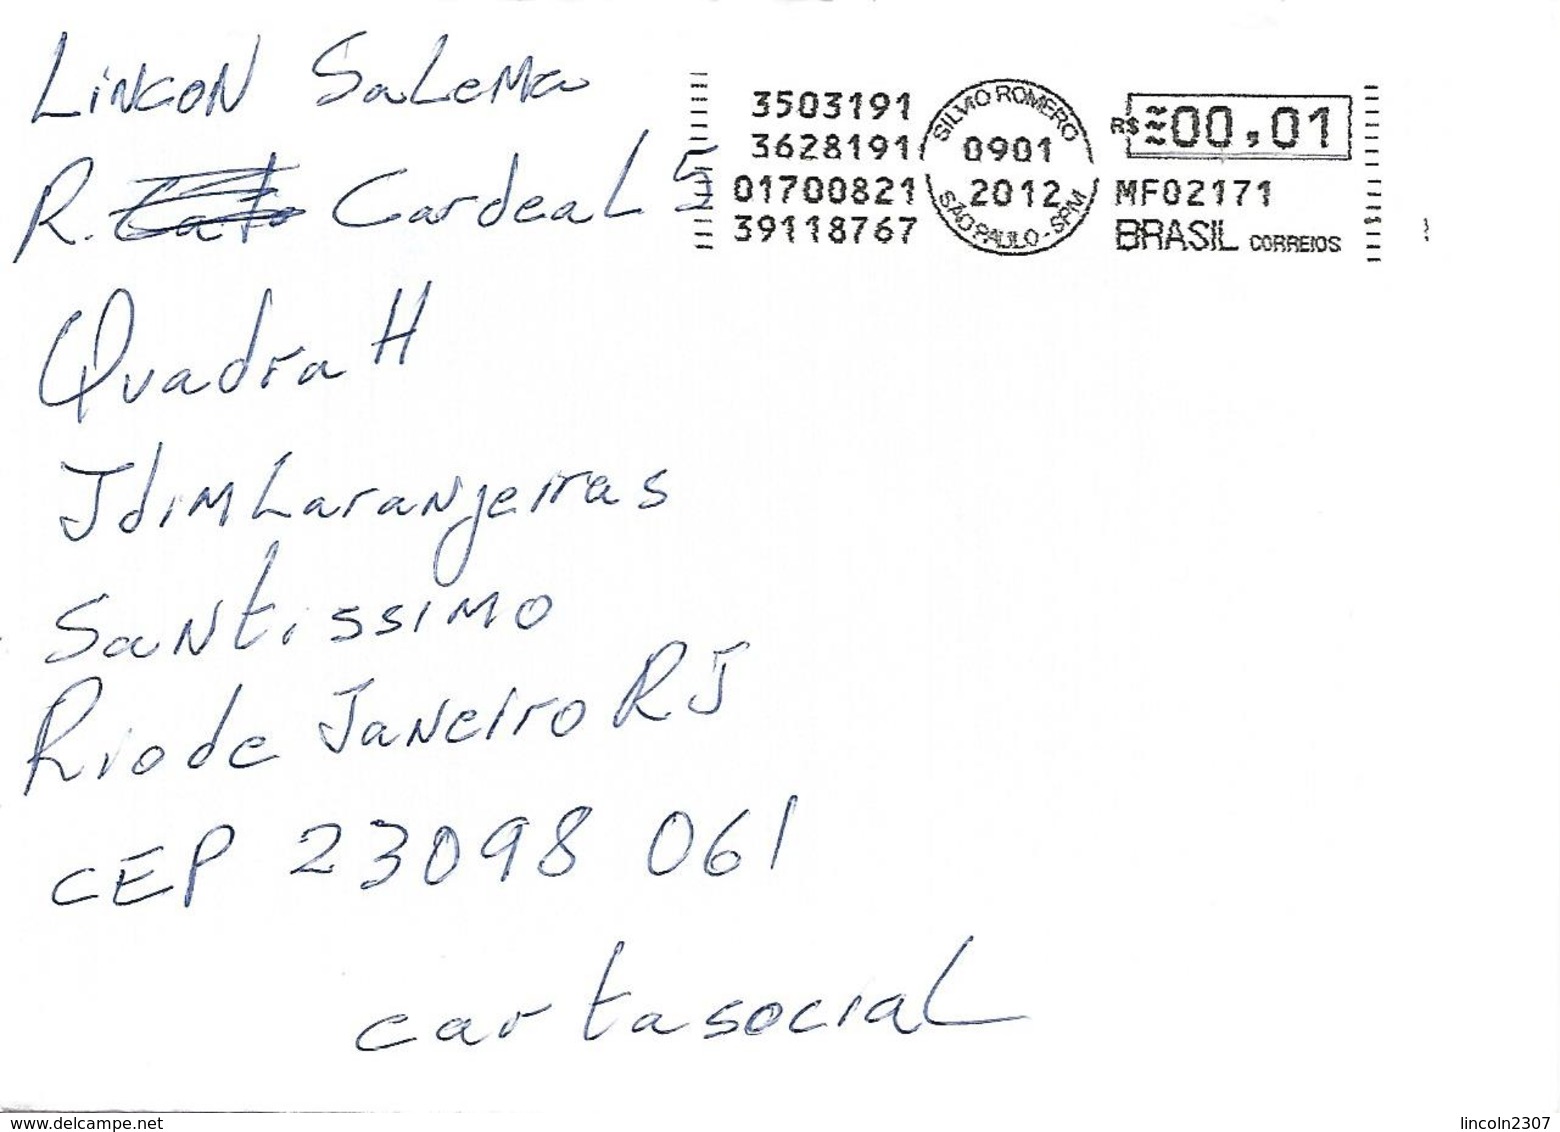 Lincon Salema
R. Cardeal 5
Quadra H
Jdim Laranjeiras
Santissimo
Rio de Janeiro RJ
CEP 23098 061
carta social
3503191
3628191
01700821
39118767
SILVIO ROMERO
0901
2012
SÃO PAULO - SPM
R$ 00,01
MF02171
BRASIL CORREIOS
www.delcampe.net
lincoln2307